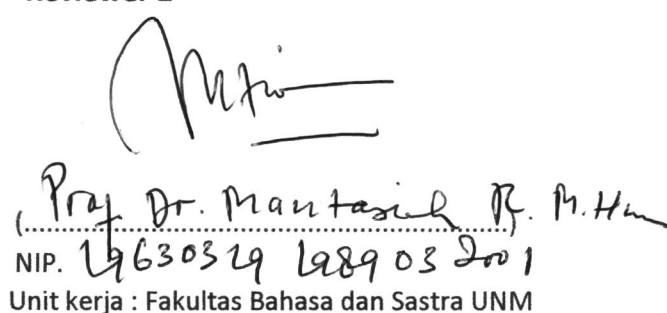 Reviewer 2
(Prof Dr. Mantasiah R. M.Hum)
NIP. 19630319 198903 2001
Unit kerja : Fakultas Bahasa dan Sastra UNM